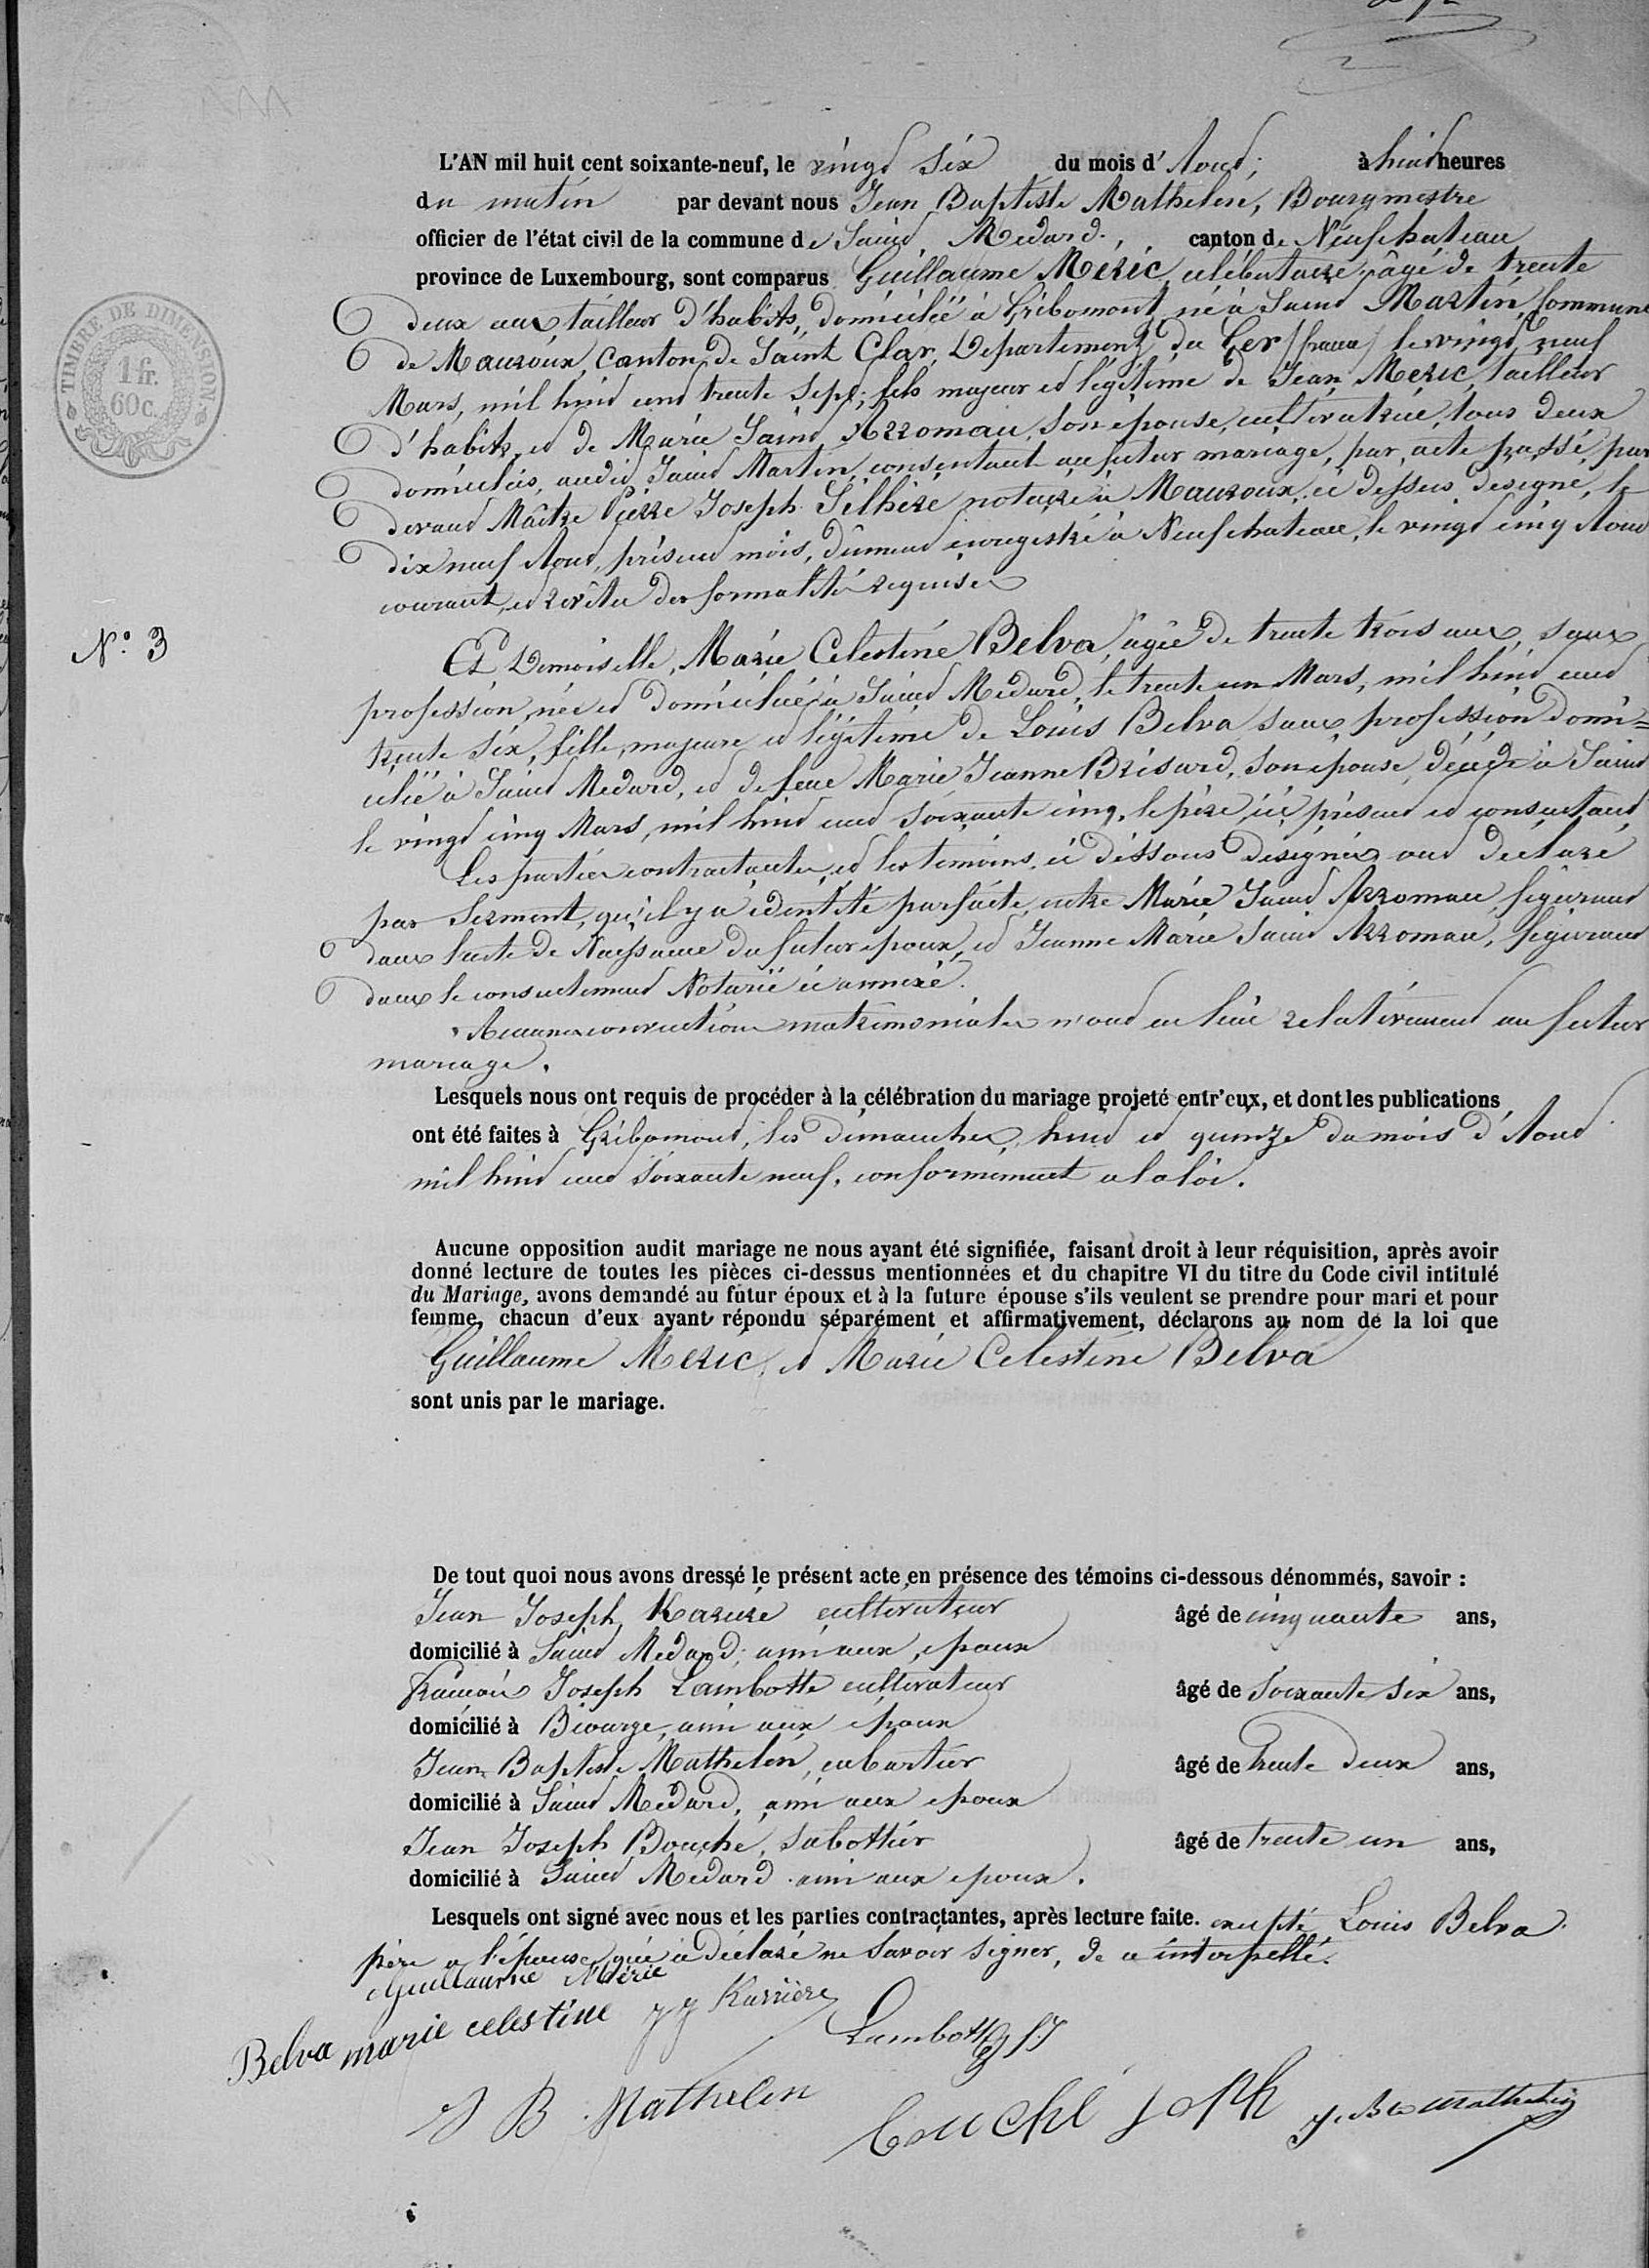 L'AN mil huit cent soixante-neuf, le vingt Six du mois d'Aout, à huit heures
du matin par devant nous Jean Baptiste Mathelin, Bourgmestre
officier de l'état civil de la commune de Saint Medard, canton de Neufchateau
province de Luxembourg, sont comparus Guillaume Meric célibataire, âgé de trente
deux ans tailleur d'habits, domicilié à Gribomont, né à Saint Martin, Commune
de Mauroux, Canton de Saint Clar, Departement du Ger (france) le vingt neuf
Mars, mil huit cent trente sept; fils majeur et légitime de Jean Meric, tailleur
d'habits, et de Marie Saint Arroman, son epouse, cultivatrice, tous deux
domiciliés, audit Saint Martin, consentant au futur mariage, par acte passé, par
devant Maître Pierre Joseph Silhère notaire à Mauroux, ci dessus designé, le
dix neuf Aout, présent mois, dûment enregistré à Neufchateau, le vingt cinq Aout
courant, et revêtu des formalités requises
N° 3
Et Demoiselle, Marie Celestine Belva, âgée de trente trois ans, sans
profession, née et domiciliée à Saint Medard, le trente un Mars, mil huit cent
trente six, fille majeure et légitime de Louis Belva sans profession domi=
cilié à Saint Medard, et de feue Marie Jeanne Brisard, son epouse, décédé à Saint
le vingt cinq Mars, mil huit cent soixante cinq, le père ici présent et consentant,
Les parties contractantes, et les temoins ci dessous désignés ont déclaré
par Serment, qu'il y a identité parfaite, entre Marie Saint Arroman figurant
dans l'acte de Naissance du futur epoux, et Jeanne Marie Saint Arroman, figurant
dans le consentement Notarié ci annexé.
Aucunes conventions matrimoniales n'ont eu lieu relativement au futur
mariage.
Lesquels nous ont requis de procéder à la célébration du mariage projeté entr'eux, et dont les publications
ont été faites à Gribomont, les dimanches, huit et quinze du mois d'Aout
mil huit cent soixante neuf, conformément a la loi.
Aucune opposition audit mariage ne nous ayant été signifiée, faisant droit à leur réquisition, après avoir
donné lecture de toutes les pièces ci-dessus mentionnées et du chapitre VI du titre du Code civil intitulé
du Mariage, avons demandé au futur époux et à la future épouse s'ils veulent se prendre pour mari et pour
femme, chacun d'eux ayant répondu séparément et affirmativement, déclarons au nom de la loi que
Guillaume Meric, et Marie Celestine Belva
sont unis par le mariage.
De tout quoi nous avons dressé le présent acte en présence des témoins ci-dessous dénommés, savoir :
Jean Joseph Karière cultivateur âgé de cinquante ans,
domicilié à Saint Medard; ami aux epoux
François Joseph Lambotte cultivateur âgé de soixante six ans,
domicilié à Biourge, ami aux epoux
Jean Baptiste Mathelin, cabartier âgé de trente deux ans,
domicilié à Saint Medard, ami aux epoux
Jean Joseph Bouché, sabottier âgé de trente un ans,
domicilié à Saint Medard ami aux epoux.
Lesquels ont signé avec nous et les parties contractantes, après lecture faite. excepté Louis Belva
père a l'épouse, qui a déclaré ne savoir signer, de ce interpellé.
Guillaume Méric
Belva marie celestine J J Karrière
Lambotte f. J
J B Mathelin
bouché joseph J. Bte Mathelin
TIMBRE DE DIMENSION
1 fr.
60 c.